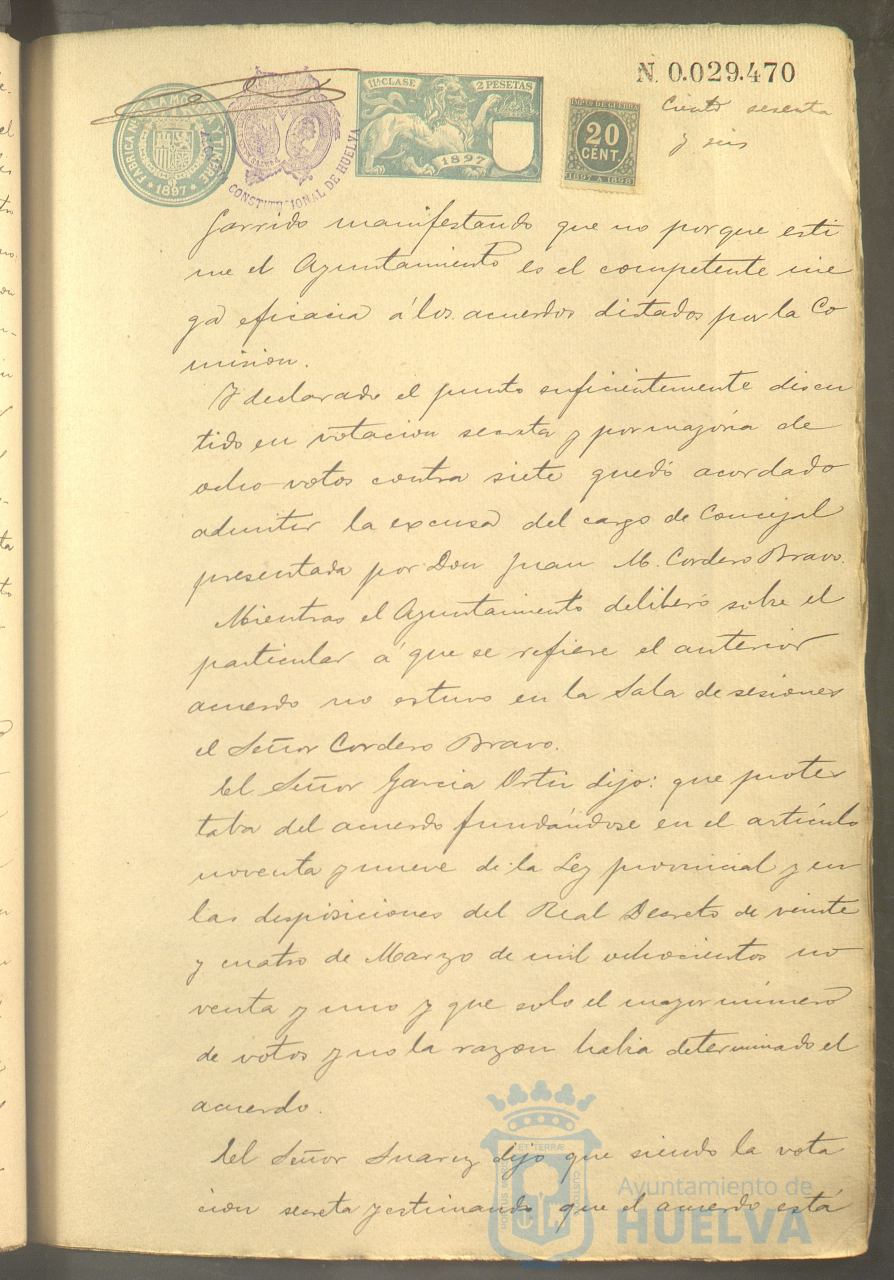 N. 0.029.470
Ciento sesenta
y seis
FABRICA N. DE LA MONEDA Y TIMBRE
* 1897 *
CONSTITUCIONAL DE HUELVA
11ª CLASE
2 PESETAS
1897
IMPTO DE GUERRA
20
CENT.
1897 A 1898
Garrido manifestando que no porque esti
me el Ayuntamiento es el competente nie
ga eficacia á los acuerdos dictados por la Co
mision.
Y declarado el punto suficientemente discu
tido en votacion secreta y por mayoria de
ocho votos contra siete quedó acordado
admitir la excusa del cargo de Concejal
presentada por Don Juan M. Cordero Bravo.
Mientras el Ayuntamiento deliberó sobre el
particular á que se refiere el anterior
acuerdo no estuvo en la Sala de sesiones
el Señor Cordero Bravo.
El Señor Garcia Ortiz dijo: que protes
taba del acuerdo fundándose en el artículo
noventa y nueve de la Ley provincial y en
las disposiciones del Real Decreto de veinte
y cuatro de Marzo de mil ochocientos no
venta y uno y que solo el mayor número
de votos y no la razon habia determinado el
acuerdo.
El Señor Suarez dijo que siendo la vota
cion secreta y estimando que el acuerdo está
ET TERRÆ
CUSTODIA
PORTUS MARIS
Ayuntamiento de
HUELVA